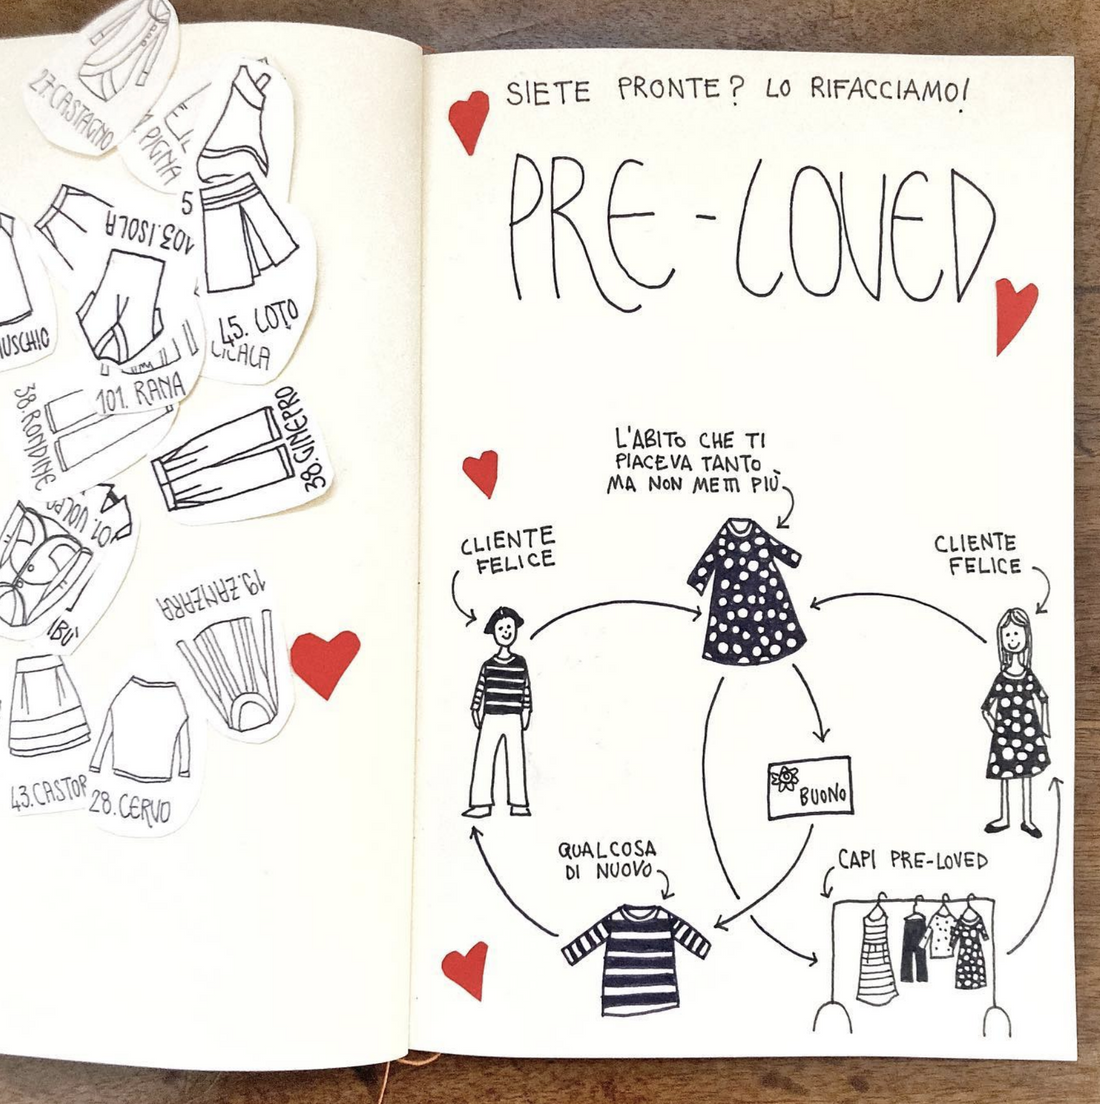 27.CASTAGNO
PIGNA
5
103.ISOLA
45. LOTO
CICALA
101. RANA
38.RONDINE
38.GINEPRO
19.ZANZARA
43.CASTOR
28.CERVO
SIETE PRONTE? LO RIFACCIAMO!
PRE-LOVED
L'ABITO CHE TI
PIACEVA TANTO
MA NON METTI PIÙ
CLIENTE
FELICE
CLIENTE
FELICE
BUONO
QUALCOSA
DI NUOVO
CAPI PRE-LOVED